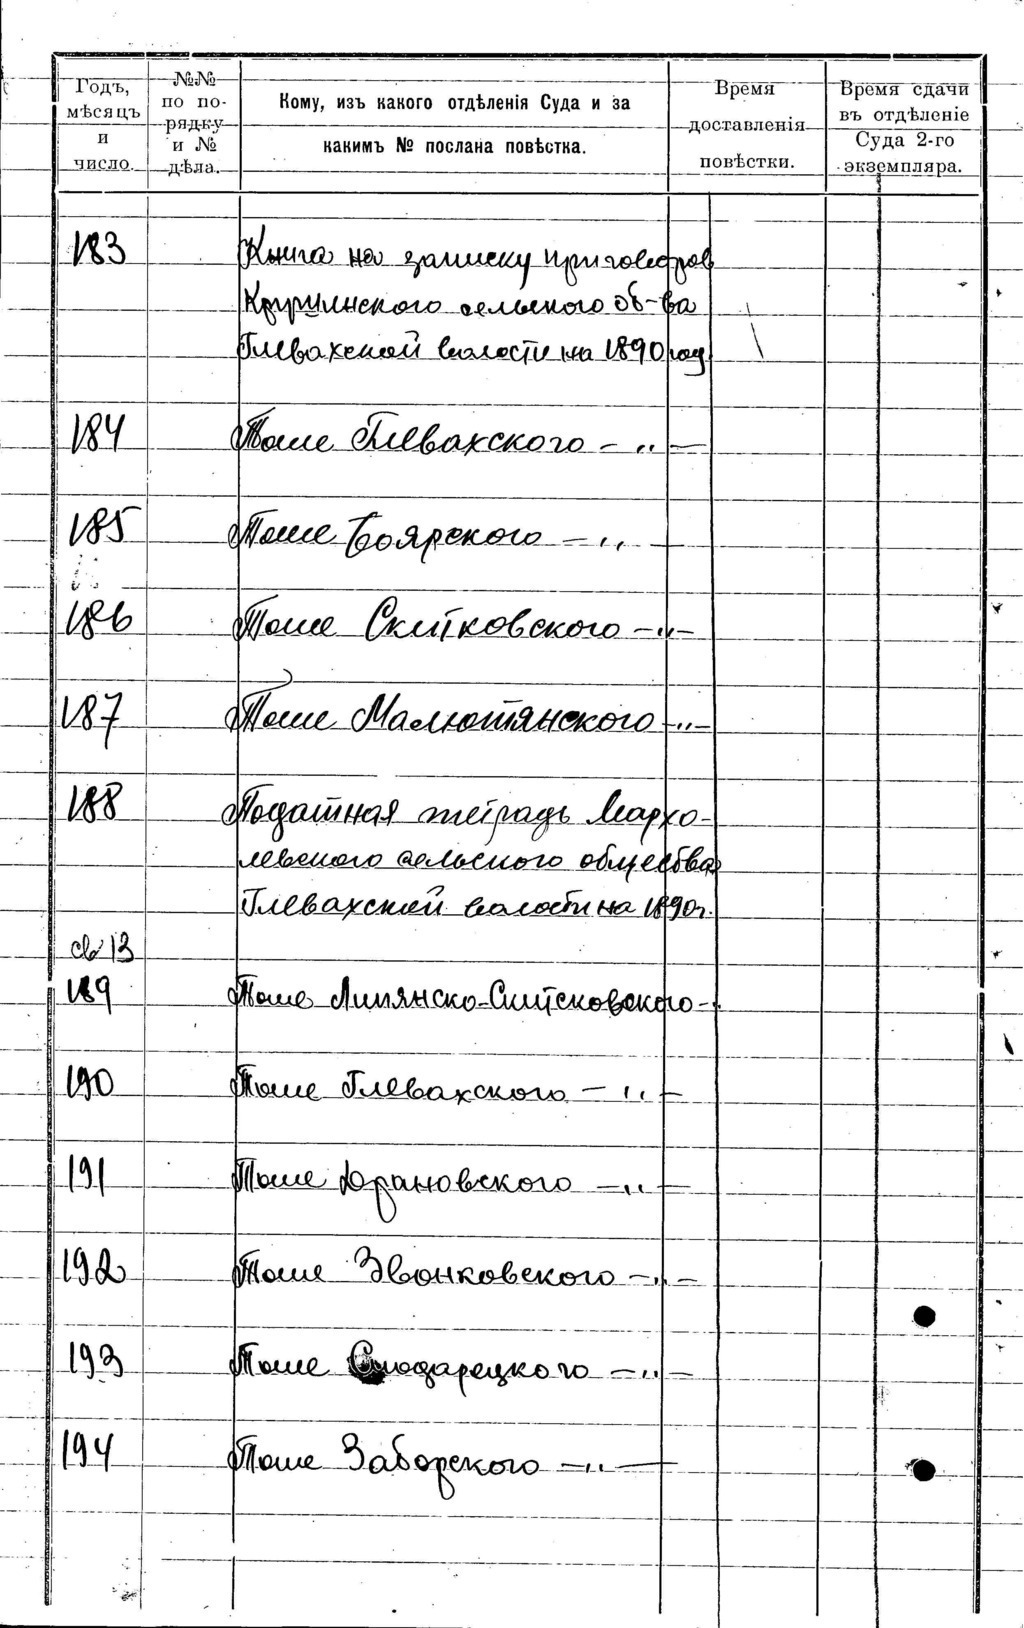 Годъ, мѣсяцъ и число.
№№ по порядку и № дѣла.
Кому, изъ какого отдѣленія Суда и за какимъ № послана повѣстка.
Время доставленія повѣстки.
Время сдачи въ отдѣленіе Суда 2-го экземпляра.
183 Книга на записку приговоров
сельского об-ва
Глевахской волости на 1890 год
184 Тоже Глевахского – „ –
185 Тоже Боярского – „
186 Тоже Скитковского – „ –
187 Тоже Малютянского – „ –
188 Податная тетрадь Мархо-
левского сельского общества
Глевахской волости на 1890 г.
св 13
189 Тоже Липянско-Скитсковского – „
190 Тоже Глевахского – „ –
191 Тоже Юрановского – „ –
192 Тоже Звонковского – „ –
193 Тоже – „ –
194 Тоже Заборского – „ –